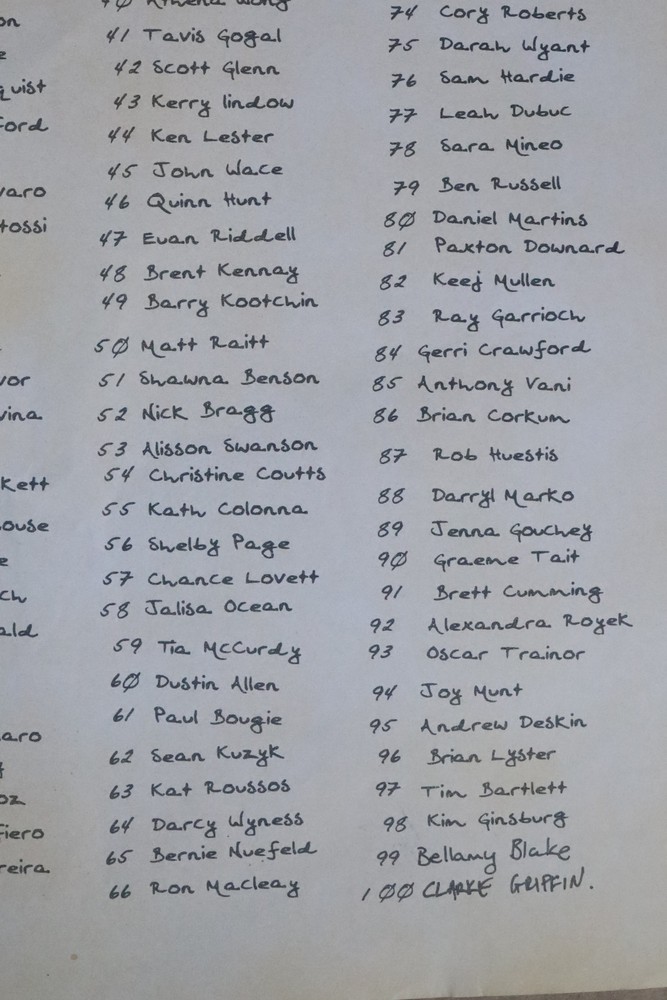 on
e
quist
ford
varo
tossi
vor
vina
Kett
ouse
e
ch
ald
aro
oz
fiero
reira
40 Athena Wong
41 Tavis Gogal
42 Scott Glenn
43 Kerry lindow
44 Ken Lester
45 John Wace
46 Quinn Hunt
47 Evan Riddell
48 Brent Kennay
49 Barry Kootchin
50 Matt Raitt
51 Shawna Benson
52 Nick Bragg
53 Alisson Swanson
54 Christine Coutts
55 Kath Colonna
56 Shelby Page
57 Chance Lovett
58 Jalisa Ocean
59 Tia McCurdy
60 Dustin Allen
61 Paul Bougie
62 Sean Kuzyk
63 Kat Roussos
64 Darcy Wyness
65 Bernie Nuefeld
66 Ron Macleay
74 Cory Roberts
75 Darah Wyant
76 Sam Hardie
77 Leah Dubuc
78 Sara Mineo
79 Ben Russell
80 Daniel Martins
81 Paxton Downard
82 Keej Mullen
83 Ray Garrioch
84 Gerri Crawford
85 Anthony Vani
86 Brian Corkum
87 Rob Huestis
88 Darryl Marko
89 Jenna Gouchey
90 Graeme Tait
91 Brett Cumming
92 Alexandra Royek
93 Oscar Trainor
94 Joy Munt
95 Andrew Deskin
96 Brian Lyster
97 Tim Bartlett
98 Kim Ginsburg
99 Bellamy Blake
100 CLARKE GRIFFIN.